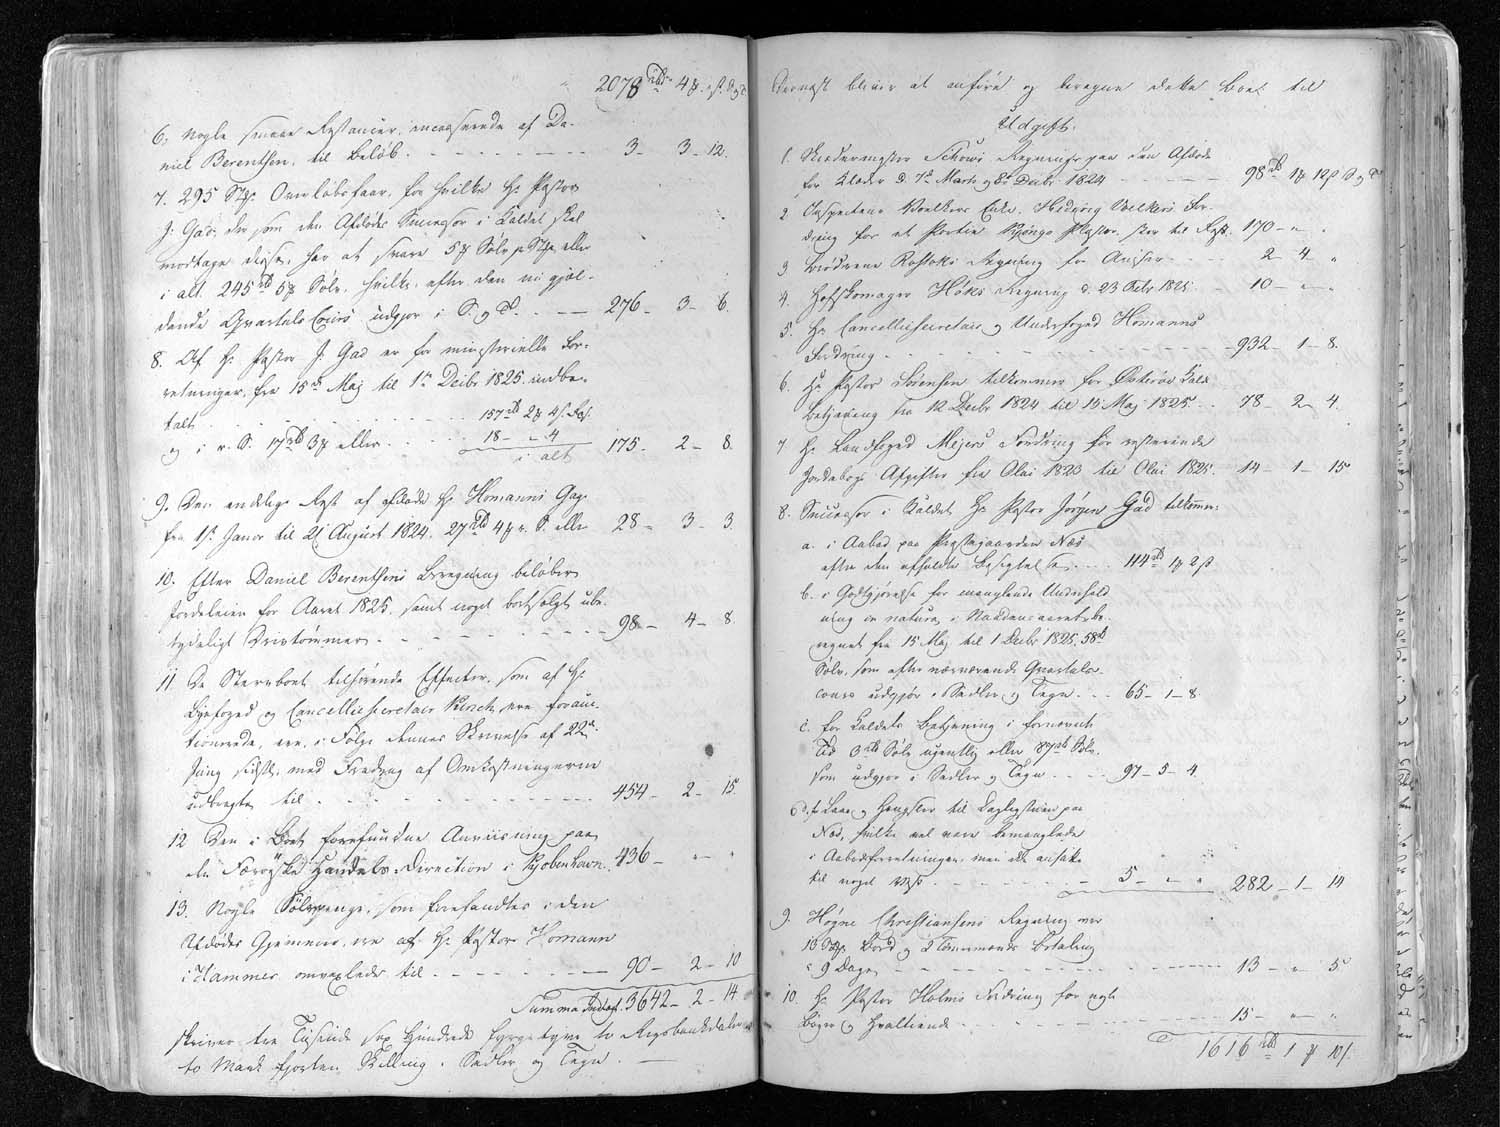 2078 rbd 4 ƶ " s. S og T.
6, Nogle smaae Restancer, incasserede af Da-
niel Berenthsen, til Beløb. - - - - - 3 - 3 - 12.
7. 295 Stk. Overløbsfaar, for hvilke Hr Pastor
J: Gad, der som den Afdødes Successor i Kaldet skal
modtage disse, har at svare 5 ƶ Sølv p Stk eller
i alt 245 rbd 5 ƶ Sølv, hvilke, efter den nu gjæl-
dende Qvartals Cours udgjør i S. og T. - - 276 - 3 - 6.
8. Af Hr Pastor J. Gad er for ministerielle For-
retninger, fra 15de Maj til 1ste Decbr 1825 indbe-
talt - - - - - 157 rbd 2 ƶ 4 s.
og i r. S. 17 rbd 3 ƶ eller - - - 18 - " - 4
i alt 175 - 2 - 8.
9. Den endelige Rest af afdøde Hr Homanns Gage
fra 1ste Januar til 21 August 1824. 27 rbd 4 ƶ r. S. eller 28 - 3 - 3.
10. Efter Daniel Berenthsens Beregning beløber
Jordeleien for Aaret 1825, samt noget bortsolgt ube-
tydeligt Drivtømmer - - - - - 98 - 4 - 8.
11 De Sterbboet tilhørende Effecter, som af Hr
Byefoged og Cancelliesecretair ere forauc-
tionerede, ere, i Følge dennes Skrivelse af 22de
Juny sidstl. med Fradrag af Omkostningerne
udbragte til - - - - - 454 - 2 - 15.
12 Den i Boet forefundne Anviisning paa
den Færøyske Handels-Direction i Kjøbenhavn 436 - " - "
13. Nogle Sølvpenge, som forefandtes i den
Afdødes Gjemmer, ere af Hr Pastor Homann
i Hammer omvexlede til - - - - 90 - 2 - 10
Summa Indtægt 3642 - 2 - 14
skriver tre Tusinde sex Hundrede fyrgetyve to Rigsbankdaler
to Mark fjorten Skilling i Sedler og Tegn. -
Dernæst bliver at anføre og beregne dette Boet til
Udgift.
1. Skrædermester Schous Regninger paa den Afdøde
for Klæder d. 7de Marts og 8de Decbr 1824 - - - 98 rbd 1 ƶ 12 s S og T
2 Inspecteur Voelkers Enke, Hedevig Welkers For-
dring for et Partie Kjøngs Plaster, stor til Rest. 170 - " "
3 Brødrene Rostoks Regning for Aviser - - - 2 - 4 - "
4. Hofskomager Høks Regning d. 23 Febr 1825 - - 10 - " - "
5. Hr Cancelliesecretair og Underfoged Homanns
Fordring - - - - - 932 - 1 - 8.
6. Hr Pastor Sørensen tilkommer for Østerøe Kalds
Betjening fra 12 Decbr 1824 til 15 Maj 1825. - - 78 - 2 - 4.
7 Hr Landfoged Mejers Fordring for resterende
Jordebogs Afgifter fra Olai 1823 til Olai 1825. - 14 - 1 - 15
8. Successor i Kaldet, Hr Pastor Jørgen Gad tilkomme:
a. i Aabod paa Præstegaarden Næs
efter den afholdte Besigtelse - - - 114 rbd 1 ƶ 2 s
b. i Godtgjørelse for manglende Underhold-
ning in natura, i Naadensaaret be-
regnet fra 15 Maj til 1 Decbr 1825, 58 rbd
Sølv, som efter nærværende Qvartals
cours udgjør i Sedler og Tegn - - - 65 - 1 - 8.
c. for Kaldets Betjening i fornævnte
Tid 3 rbd Sølv ugentlig eller 87 rbd Sølv
som udgjør i Sedler og Tegn - - - 97 - 5 - 4.
d. for Laase og Hengsler til
Næs, hvilke vel vare bemanglede
i Aabodsforretningen, men ikke ansatte
til noget vist - - - - - 5 - " - " 282 - 1 - 14
9. Høgne Christiansens Regning over
13 Stk. Bord og 2 Tømmermænds Betaling
i 9 Dage - - - - - 13 - " - 5.
10. Hr Pastor Holms Fordring for nogle
Bøger og Hvalliende - - - - - 15 - " - "
1616 rbd 1 ƶ 10 s.